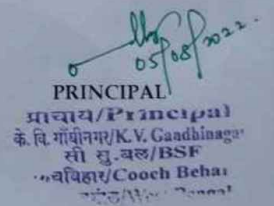 05/08/2022.
PRINCIPAL
प्राचार्य/Principal
के. वि. गाँधीनगर/K. V. Gandhinagar
सी सु. बल/BSF
चबिहार/Cooch Behar